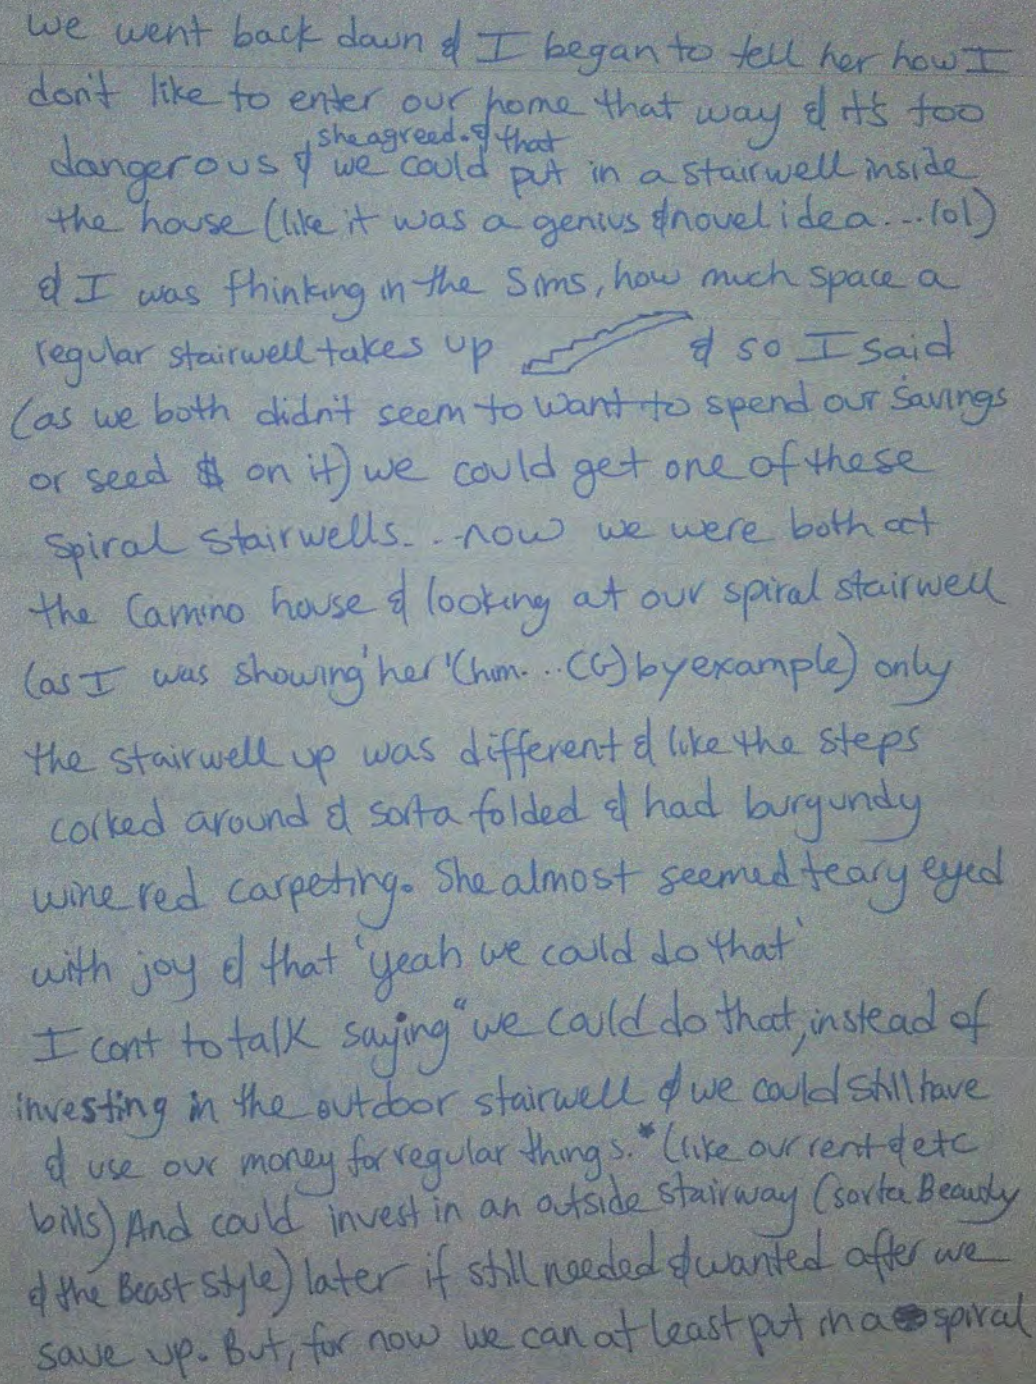 we went back down & I began to tell her how I
don't like to enter our home that way & it's too
she agreed. & that
dangerous & we could put in a stairwell inside
the house (like it was a genius & novel idea...lol)
& I was thinking in the Sims, how much space a
regular stairwell takes up & so I said
(as we both didn't seem to want to spend our savings
or seed $ on it) we could get one of these
spiral stairwells...now we were both at
the Camino house & looking at our spiral stairwell
(as I was showing 'her' (him...CG) by example) only
the stairwell up was different & like the steps
corked around & sorta folded & had burgundy
wine red carpeting. She almost seemed teary eyed
with joy & that 'yeah we could do that'
I cont to talk saying "we could do that, instead of
investing in the outdoor stairwell & we could still have
& use our money for regular things.* (like our rent & etc
bills) And could invest in an outside stairway (sorta Beauty
& the Beast style) later if still needed & wanted after we
save up. But, for now we can at least put in a spiral